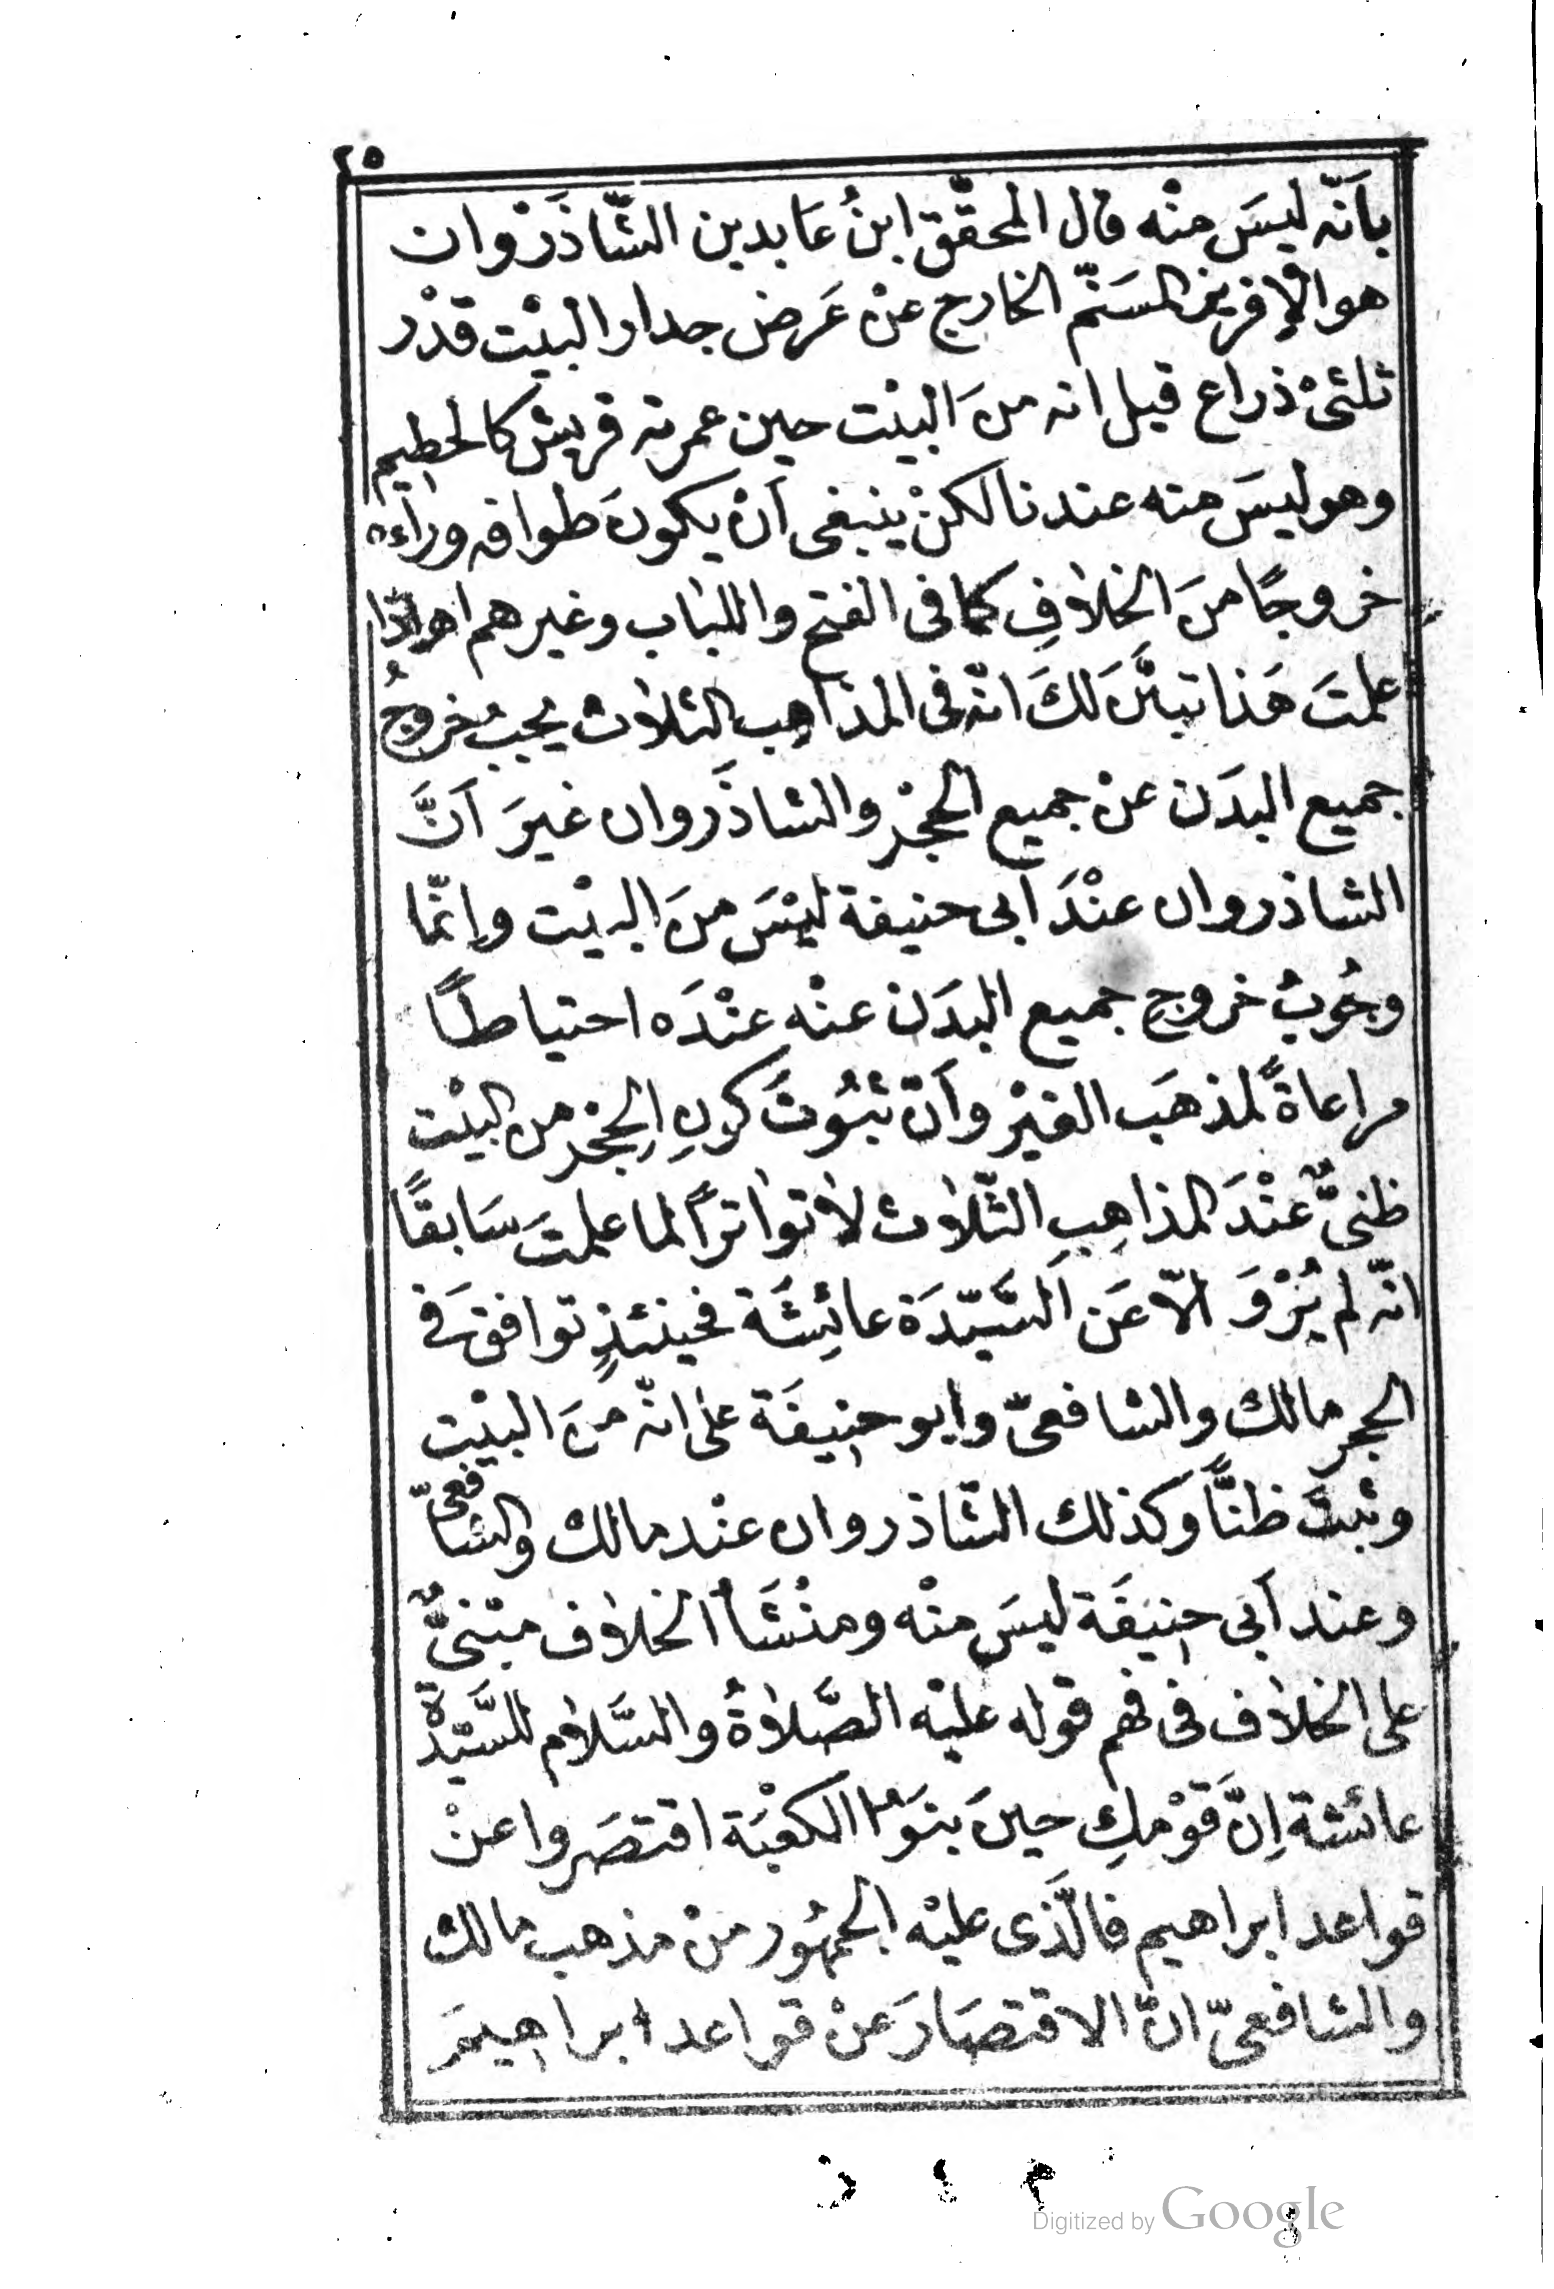 ٢٥
بأَنّه ليسَ منْه قال المحقّق ابنُ عَابدين الشّاذَرْوان
هو الإفريز المسَنّم الخارج عنْ عَرض جدار البيْت قدْر
ثلثىْ ذراع قيل انه منَ البيْت حين عمرته قريش كالحطيم
وهو ليسَ منه عندنا لكنْ ينبغى اَنْ يكونَ طوافه وراءه
خروجًا منَ الخلافِ كما فى الفتح واللباب وغيرهم اهـ واذا
علمتَ هَذا تبيَّنَ لكَ انّه فى المذاهب الثلاث يجبُ خروجُ
جميع البدَن عنْ جميع الحجْر والشاذَروان غيرَ اَنَّ
الشاذروان عنْدَ اَبى حنيفة ليْسَ منَ البيْت وإنّما
وجُوبُ خروج جميع البدَن عنْه عنْدَه احتياطًا
مراعاةً لمذهَب الغيْر واَنّ ثبُوتَ كونِ الحِجْر من البيْت
ظنىٌّ عنْدَ المذاهِبِ الثّلاث لا تواتراً لما علمتَ سَابقًا
انّه لم يُرْوَ الّا عَن السَّيّدَة عائِشَة فحينئذٍ توافقَ فى
الحجر مالك والشافعىّ وابو حنِيفَة على انّه منَ البيْت
وثبتَ ظنًّا وَكذلك الشّاذروان عنْد مالك والشافعىّ
وعند اَبى حنِيفَة ليسَ منْه ومنْشَأ الخلاف مبْنىٌّ
على الخلاف فى فهم قوله عليْه الصَّلاةُ والسَّلام للسَّيّدة
عائشة اِنَّ قوْمكِ حينَ بنَوْا الكعْبَة اقتصَروا عنْ
قواعد ابراهيم فالّذى عليْه الجمهُور منْ مذهب مالك
والشافعىّ انّ الاقتصَارَ عنْ قواعد ابراهيمَ
Digitized by Google